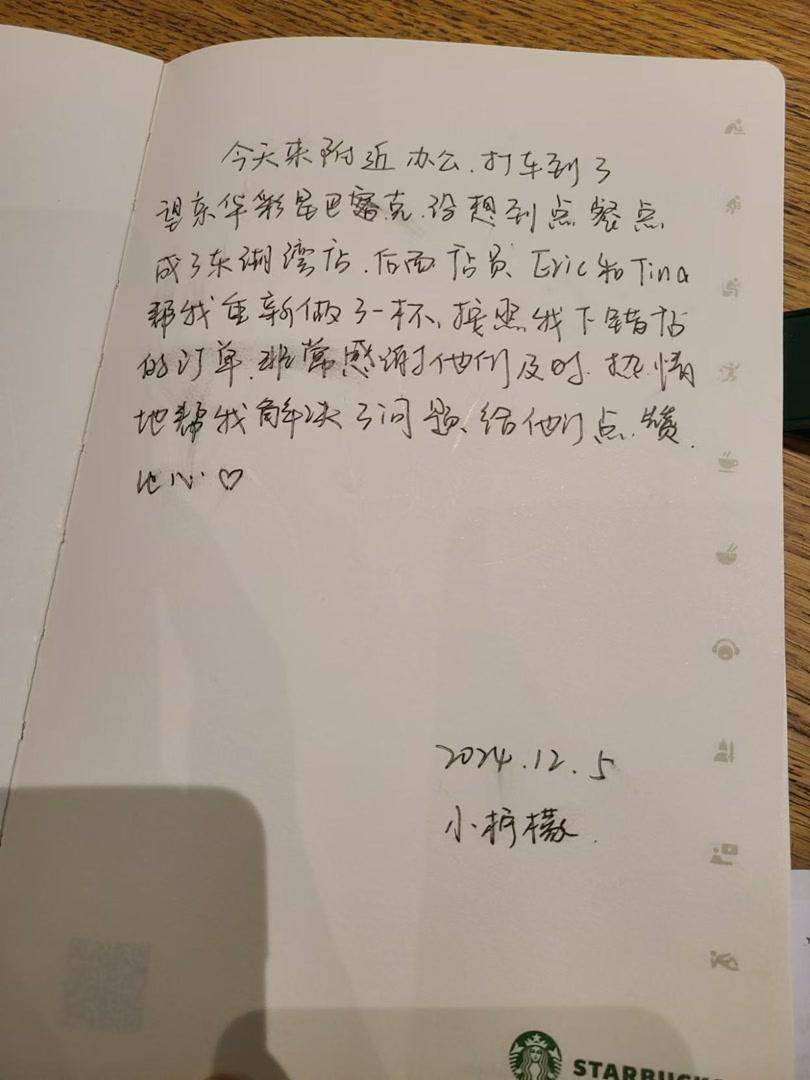 今天来附近办公,打车到了
望京华彩星巴客克,没想到点餐点
成了东湖湾店,后面店员 Eric和Tina
帮我重新做了一杯,按照我下错店
的订单,非常感谢他们及时、热情
地帮我解决了问题、给他们点赞.
比心♡
2024.12.5
小柠檬.
STARBUCKS